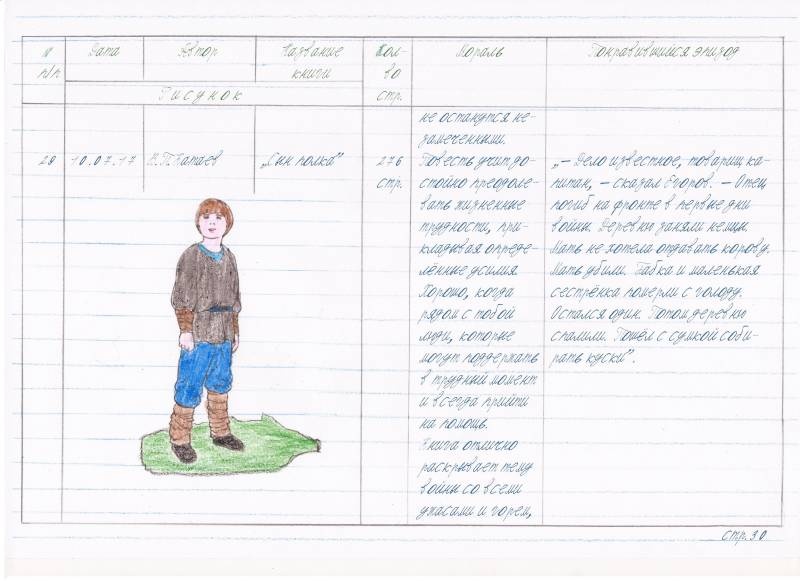 N Дата Автор Название Кол- Мораль Понравившийся эпизод
п/п книги во
Рисунок стр.
не останутся не-
замеченными.
28 10.07.17 В.П.Катаев „Сын полка” 276 Повесть учит до- „– Дело известное, товарищ ка-
стр. стойно преодоле- питан, – сказал Егоров. – Отец
вать жизненные погиб на фронте в первые дни
трудности, при- войны. Деревню заняли немцы.
кладывая опреде- Мать не хотела отдавать корову.
лённые усилия Мать убили. Бабка и маленькая
Хорошо, когда сестрёнка померли с голоду.
рядом с тобой Остался один. Потом деревню
люди, которые спалили. Пошёл с сумкой соби-
могут поддержать рать куски”.
в трудный момент
и всегда прийти
на помощь.
Книга отлично
раскрывает тему
войны со всеми
ужасами и горем,
стр. 30